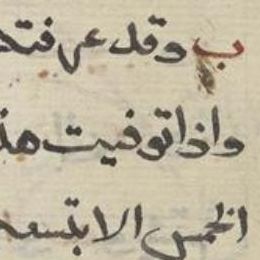 ب وقل عن فتد
واذا توفيت هذ
الخمس الا بتسعه